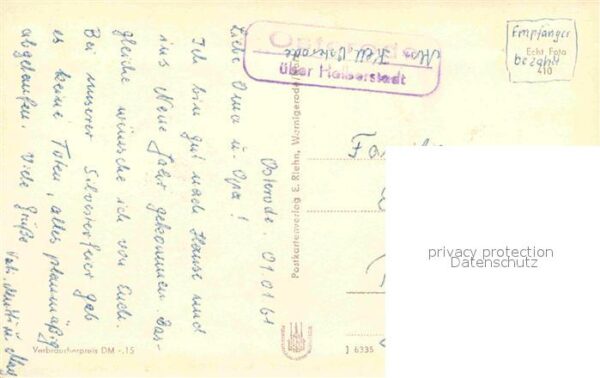 Osterode. 01.01.61
Liebe Oma u. Opa!
Ich bin gut nach Hause und
ins Neue Jahr gekommen. Das-
gleiche wünsche ich von Euch.
Bei unserer Silvesterfeier gab
es keine Toten, alles planmäßig
abgelaufen. Viele Grüße
Vati, Mutti u.
über Halberstadt
Osterode
Empfänger
bezahlt
Echt Foto
410
Postkartenverlag E. Riehn, Wernigerode/
Verbraucherpreis DM -.15
J 6335
privacy protection
Datenschutz